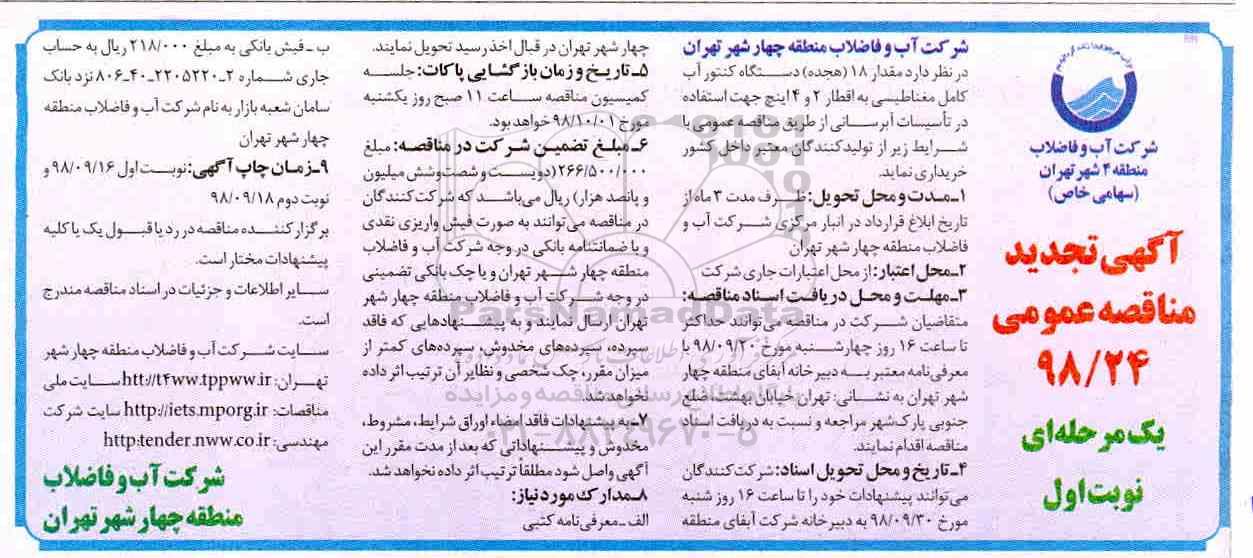 شرکت آب و فاضلاب
منطقه ۴ شهر تهران
(سهامی خاص)
آگهی تجدید
مناقصه عمومی
۹۸/۲۴
یک مرحله‌ای
نوبت اول
شرکت آب و فاضلاب منطقه چهار شهر تهران
در نظر دارد مقدار ۱۸ (هجده) دستگاه کنتور آب
کامل مغناطیسی به اقطار ۲ و ۴ اینچ جهت استفاده
در تأسیسات آبرسانی از طریق مناقصه عمومی با
شرایط زیر از تولیدکنندگان معتبر داخل کشور
خریداری نماید.
۱ـ مدت و محل تحویل: ظرف مدت ۳ ماه از
تاریخ ابلاغ قرارداد در انبار مرکزی شرکت آب و
فاضلاب منطقه چهار شهر تهران
۲ـ محل اعتبار: از محل اعتبارات جاری شرکت
۳ـ مهلت و محل دریافت اسناد مناقصه:
متقاضیان شرکت در مناقصه می‌توانند حداکثر
تا ساعت ۱۶ روز چهارشنبه مورخ ۹۸/۰۹/۲۰ با
معرفی‌نامه معتبر به دبیرخانه آبفای منطقه چهار
شهر تهران به نشانی: تهران خیابان بهشت ضلع
جنوبی پارک‌شهر مراجعه و نسبت به دریافت اسناد
مناقصه اقدام نمایند.
۴ـ تاریخ و محل تحویل اسناد: شرکت‌کنندگان
می‌توانند پیشنهادات خود را تا ساعت ۱۶ روز شنبه
مورخ ۹۸/۰۹/۳۰ به دبیرخانه شرکت آبفای منطقه
چهار شهر تهران در قبال اخذ رسید تحویل نمایند.
۵ـ تاریخ و زمان بازگشایی پاکات: جلسه
کمیسیون مناقصه ساعت ۱۱ صبح روز یکشنبه
مورخ ۹۸/۱۰/۰۱ خواهد بود.
۶ـ مبلغ تضمین شرکت در مناقصه: مبلغ
۲۶۶/۵۰۰/۰۰۰ (دویست و شصت‌وشش میلیون
و پانصد هزار) ریال می‌باشد که شرکت‌کنندگان
در مناقصه می‌توانند به صورت فیش واریزی نقدی
و یا ضمانتنامه بانکی در وجه شرکت آب و فاضلاب
منطقه چهار شهر تهران و یا چک بانکی تضمینی
در وجه شرکت آب و فاضلاب منطقه چهار شهر
تهران ارسال نمایند و به پیشنهادهایی که فاقد
سپرده، سپرده‌های مخدوش، سپرده‌های کمتر از
میزان مقرر، چک شخصی و نظایر آن ترتیب اثر داده
نخواهد شد.
۷ـ به پیشنهادات فاقد امضاء اوراق شرایط، مشروط،
مخدوش و پیشنهاداتی که بعد از مدت مقرر این
آگهی واصل شود مطلقاً ترتیب اثر داده نخواهد شد.
۸ـ مدارک مورد نیاز:
الف ـ معرفی‌نامه کتبی
ب ـ فیش بانکی به مبلغ ۲۱۸/۰۰۰ ریال به حساب
جاری شماره ۲ـ۲۲۰۵۲۲۰ـ۴۰ـ۸۰۶ نزد بانک
سامان شعبه بازار به نام شرکت آب و فاضلاب منطقه
چهار شهر تهران
۹ـ زمان چاپ آگهی: نوبت اول ۹۸/۰۹/۱۶ و
نوبت دوم ۹۸/۰۹/۱۸
برگزارکننده مناقصه در رد یا قبول یک یا کلیه
پیشنهادات مختار است.
سایر اطلاعات و جزئیات در اسناد مناقصه مندرج
است.
سایت شرکت آب و فاضلاب منطقه چهار شهر
تهران: htt://t4ww.tppww.ir سایت ملی
مناقصات: http://iets.mporg.ir سایت شرکت
مهندسی: http:tender.nww.co.ir
شرکت آب و فاضلاب
منطقه چهار شهر تهران
ParsNamadData
پایگاه اطلاع رسانی مناقصه و مزایده
۰۲۱-۸۸۳۴۹۶۷۰-۵